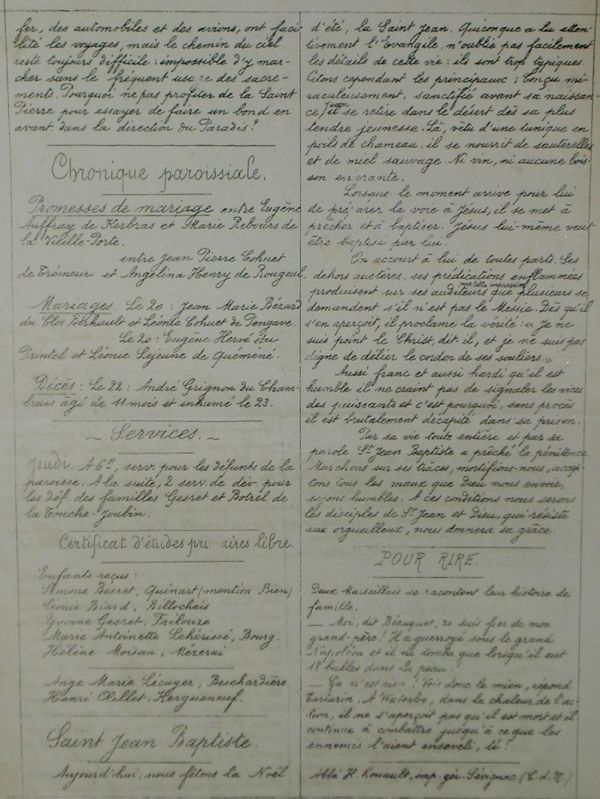 fer, des automobiles et des avions, ont faci
lité les voyages, mais le chemin du ciel
reste toujours difficile : impossible d'y mar-
cher sans le fréquent usage des sacre-
ments. Pourquoi ne pas profiter de la Saint
Pierre pour essayer de faire un bond en
avant dans la direction du Paradis ?
Chronique paroissiale.
Promesses de mariage entre Eugène
Auffray de Kerbras et Marie Rebours de
la Vieille-Porte.
entre Jean Pierre Cohuet
de Trémeur et Angélina Henry de Rougeul.
Mariages : Le 20 : Jean Marie Bézard
du Clos et Léonie Cohuet de Pengave
Le 20 : Eugène Hervé du
Printel et Léonie Lejeune de Quéméné.
Décès : Le 22 : André Grignon du Cham-
brais âgé de 11 mois et inhumé le 23.
~ Services. ~
Jeudi. A 6h, serv. pour les défunts de la
paroisse. A la suite, 2 serv. de dév. pour
les déf. des familles Gesret et Botrel de
la Touche-Joubin.
Certificat d'études pri aires libre
Enfants reçus :
Simone Besret, Quénart (mention Bien)
Biard, Billochais
Yvonne Gesret,
Marie Antoinette Lehérissé, Bourg.
Hélène Moisan, Mézerai
Ange Marie Lécuyer, Beschardière
Henri Olillet, Hergueneuf.
Saint Jean Baptiste.
Aujourd'hui, nous fêtons la Noël
d'été, la Saint Jean. Quiconque a lu atten-
tivement l'Evangile n'oublie pas facilement
les détails de cette vie : ils sont trop typiques.
Citons cependant les principaux : Conçu mi-
raculeusement, sanctifié avant sa naissan-
ce, Jean se retire dans le désert dès sa plus
tendre jeunesse. Là, vêtu d'une tunique en
poils de chameau, il se nourrit de sauterelles
et de miel sauvage. Ni vin, ni aucune bois-
son enivrante.
Lorsque le moment arrive pour lui
de préparer la voie à Jésus, il se met à
prêcher et à baptiser. Jésus lui-même veut
être baptisé par lui.
On accourt à lui de toutes parts. Ses
dehors austères, ses prédications enflammées
produisent sur ses auditeurs une telle impression que plusieurs se
demandent s'il n'est pas le Messie. Dès qu'il
s'en aperçoit, il proclame la vérité : « Je ne
suis point le Christ, dit-il, et je ne suis pas
digne de délier le cordon de ses souliers. »
Aussi franc et aussi hardi qu'il est
humble il ne craint pas de signaler les vices
des puissants et c'est pourquoi, sans procès
il est brutalement décapité dans sa prison.
Par sa vie toute entière et par sa
parole St Jean Baptiste a prêché la pénitence.
Marchons sur ses traces, mortifions-nous, accep-
tons tous les maux que Dieu nous envoie,
soyons humbles. A ces conditions nous serons
les disciples de St Jean et Dieu, qui résiste
aux orgueilleux, nous donnera sa grâce.
POUR RIRE.
Deux Marseillais se racontent leur histoire de
famille.
— Moi, dit Bézuguet, ze suis fier de mon
grand-père ! Il a guerroyé sous le grand
Napoléon et il ne tomba que lorsqu'il eut
18 balles dans la peau !
— Ça n'est rien ! Vois donc le mien, répond
Tartarin. A Waterloo, dans la chaleur de l'ac-
tion, il ne s'aperçoit pas qu'il est mort et il
continue à combattre jusqu'à ce que les
ennemis l'aient enseveli, té !
Abbé H. Rouault, imp. gér. Sévignac (C. d. N.)